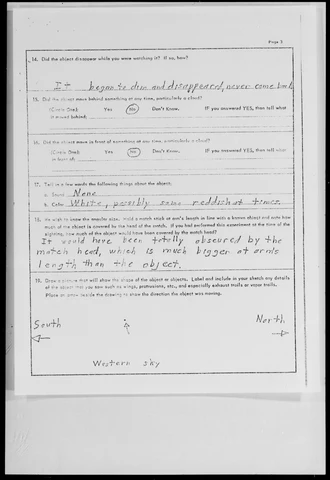 Page 3
14. Did the object disappear while you were watching it? If so, how?
It began to dim and disappeared, never come back
15. Did the object move behind something at any time, particularly a cloud?
(Circle One): Yes No Don't Know. If you answered YES, then tell what
it moved behind:
16. Did the object move in front of something at any time, particularly a cloud?
(Circle One): Yes No Don't Know. If you answered YES, then tell what
in front of:
17. Tell in a few words the following things about the object:
a. Sound None
b. Color White, possibly some reddish at times
18. We wish to know the angular size. Hold a match stick at arm's length in line with a known object and note how
much of the object is covered by the head of the match. If you had performed this experiment at the time of the
sighting, how much of the object would have been covered by the match head?
It would have been totally obscured by the
match head, which is much bigger at arms
length than the object.
19. Draw a picture that will show the shape of the object or objects. Label and include in your sketch any details
of the object that you saw such as wings, protrusions, etc., and especially exhaust trails or vapor trails.
Place an arrow beside the drawing to show the direction the object was moving.
South North
Western sky